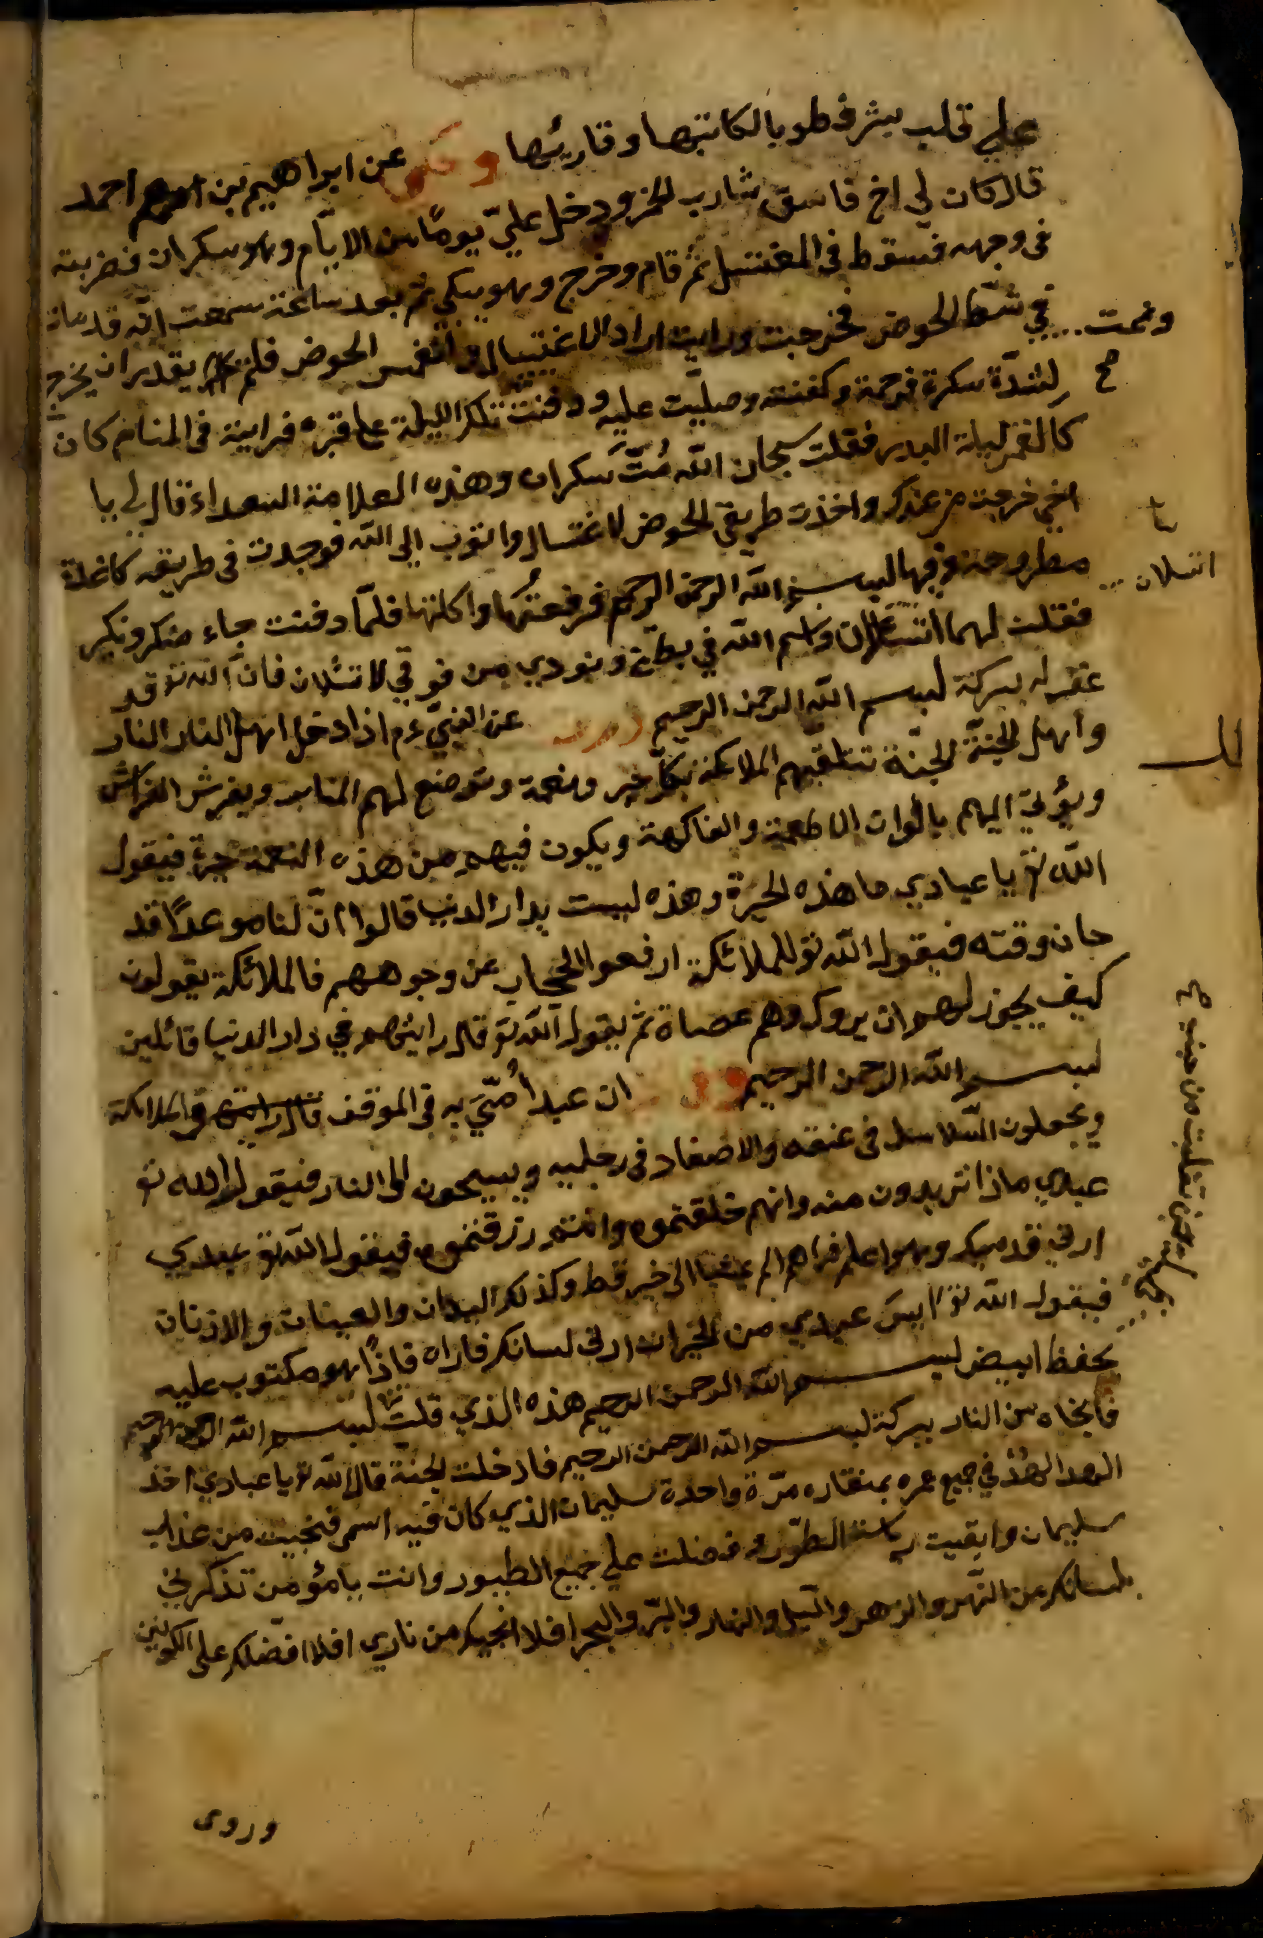 على قلب بشر فطوبا لكاتبها وقاريها وحكى عن ابراهيم بن ادهم احمد
قال كان لي اخ فاسق شارب الخمر ودخل عليّ يومًا من الايّام وهو سكران فضربته
في وجهه فسقوط في المغتسل ثم قام وخرج وهو يبكي ثم بعد ساعة سمعت انّه قد مات
في شط الحوض فخرجت ورايت اراد الاغتسال وانغمس الحوض فلم يقدر ان يخرج
لشدّة سكرة فرحمة وكفنته وصليت عليه ودفنت تلك الليلة على قبره فراينة في المنام كان
كالقمر ليلة البدر فقلت سبحان الله مُتّ سكران وهذه العلامة السعداء قال لي يا
اخي خرجت من عندك واخذت طريق الحوض لاغتسال واتوب الى الله فوجدت في طريقه كاغذة
مطروحة وفيها بسم الله الرحمن الرحيم فرفعتُها واكلتها فلمّا دفنت جاء منكر ونكير
فقلت لهما اتسئلان واسم الله في بطني ونودي من فوقي لا تسئلان فان الله تع قد
غفر له ببركة بسم الله الرحمن الرحيم وروى عن النبيّ ءم اذا دخل اهل النار النار
واهل الجنّة الجنّة تتلقيهم الملائكة بكلّ خير ونعمة وتوضع لهم المنابر ويفرش الفراش
ويؤتي اليهم بالوان الاطعمة والفاكهة ويكون فيهم من هذه النعمة حيرة فيقول
الله تع يا عبادي ما هذه الحيرة وهذه ليست بدار الدنيا قالوا انّ لنا موعدًا قد
حان وقته فيقول الله تع للملائكة ارفعوا الحجاب عن وجوههم فالملائكة يقولون
كيف يجوز لهم ان يروك وهم عصاة ثم يقول الله تع قال رايتهم في دار الدنيا قائلين
بسم الله الرحمن الرحيم وروى ان عبدا اُتي به في الموقف والملائكة
ويجعلون السّلاسل في عنقه والاصفاد في رجليه ويسحبون الى النار فيقول الله تع
عبدي ماذا تريدون منه وانهم خلقتموه وانتم رزقتموه فيقول الله تع عبدي
ارني قدميك وهو اعلم فراهم لم يمشيا الى خير قط وكذلك اليدان والعينان والاذنان
فيقول الله تع ايس عبدي من الخيرات ارني لسانك فاراه فاذًا هو مكتوب عليه
بخط ابيض بسم الله الرحمن الرحيم هذه الذي قلت بسم الله الرحمن الرحيم
فانجاه من النار ببركة بسم الله الرحمن الرحيم فادخلت الجنّة قال الله تع يا عبادي اخذ
الهدالهُدُ في جميع عمره بمنقاره مرّة واحدة سليمان الذي كان فيه اسمي فنجيت من عذاب
سليمان وابقيت رياسة الطيور وفضلت على جميع الطيور وانت يا مؤمن تذكرني
بلسانك من الشهر والدهر والليل والنهار والبرّ والبحر افلا انجيك من ناري افلا افضلك على الكونين
وروى
صح
اتسلان